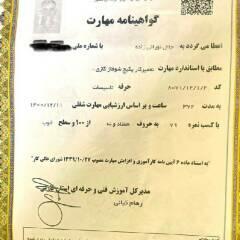 گواهینامه مهارت
اعطا می گردد به جلال نورانی زاده با شماره ملی
مطابق با استاندارد مهارت تعمیرکار پکیج شوفاژ گازی
کد ۸-۵۵/۷۱/۱/۲ حرفه تاسیسات
به مدت ۳۷۲ ساعت و بر اساس ارزشیابی مهارت شغلی ۱۴۰۰/۱۲/۱۱
با کسب نمره ۷۹ به حروف هفتاد و نه از ۱۰۰ و سطح خوب
به استناد ماده ۶ آیین نامه کارآموزی و افزایش مهارت مصوب ۱۳۴۹/۱۰/۲۷ شورای عالی کار
مدیرکل آموزش فنی و حرفه ای استان